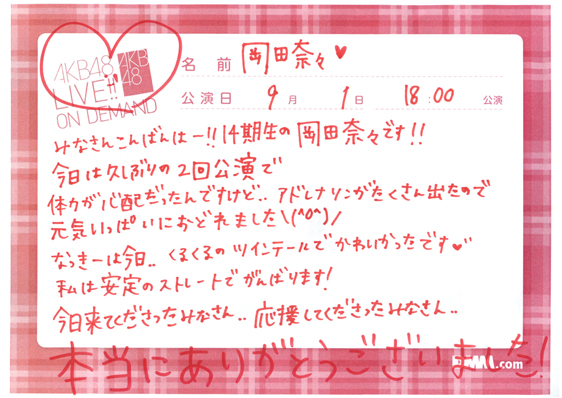 AKB48 AKB48
LIVE!!
ON DEMAND
名前 岡田奈々♥
公演日 9月 1日 18:00 公演
みなさんこんばんはー!!14期生の岡田奈々です!!
今日は久しぶりの2回公演で
体力が心配だったんですけど..アドレナリンがたくさん出たので
元気いっぱいにおどれました\(^o^)/
なっきーは今日..くるくるのツインテールでかわいかったです♥
私は安定のストレートでがんばります!
今日来てくださったみなさん..応援してくださったみなさん..
本当にありがとうございました!
DMM.com